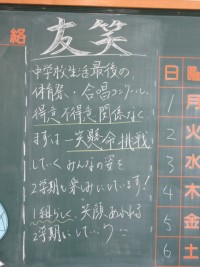 絡
友笑
中学校生活最後の
体育祭・合唱コンクール。
得意不得意関係なく
まずは一生懸命挑戦
していくみんなの姿を
2学期も楽しみにしています!
1組らしく、笑顔あふれる
2学期にしていこう
日
1 月
2 火
3 水
4 木
5 金
6 土